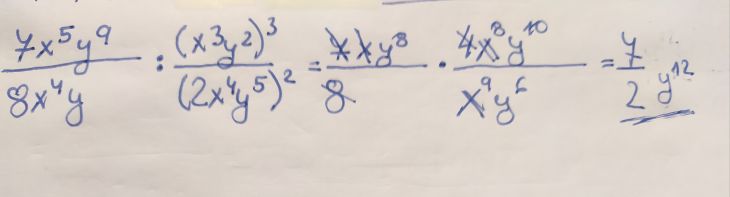 7x⁵y⁹/8x⁴y : (x³y²)³/(2x⁴y⁵)² = 7xy⁸/8 · 4x⁸y¹⁰/x⁹y⁶ = 7/2 y¹²